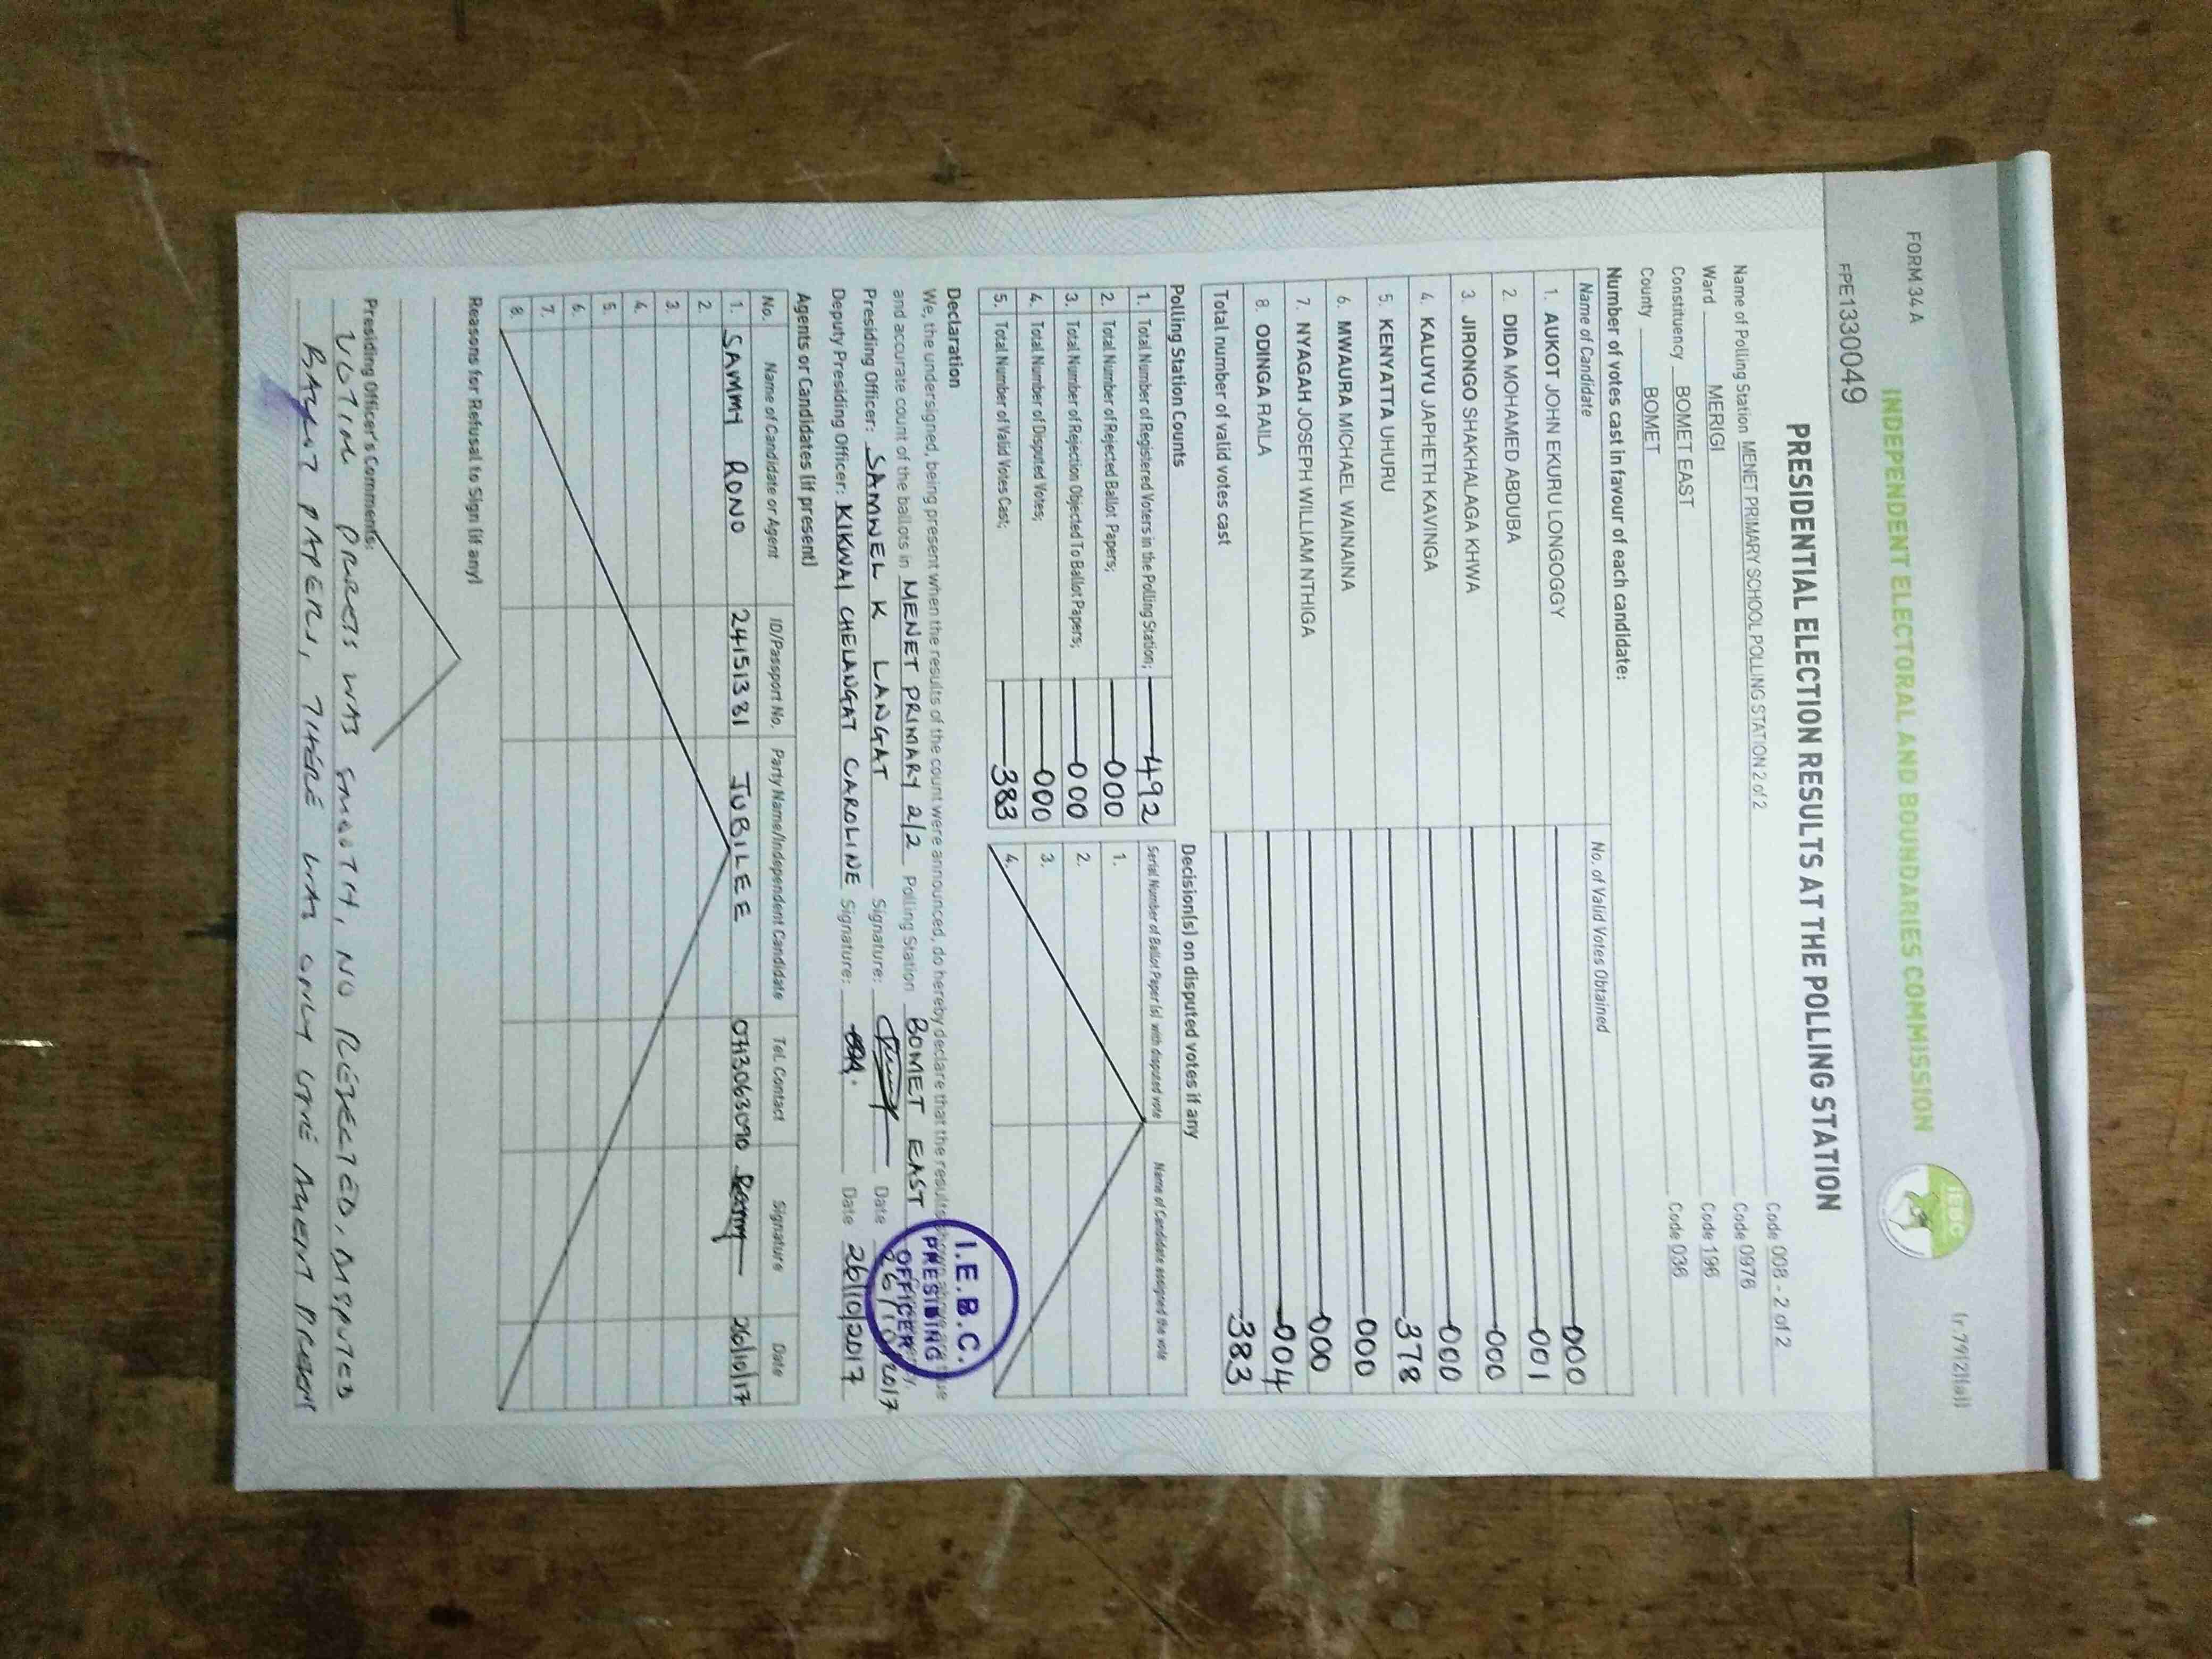 FORM 34 A
(r.79(2)(a))
INDEPENDENT ELECTORAL AND BOUNDARIES COMMISSION
IEBC
FPE1330049
PRESIDENTIAL ELECTION RESULTS AT THE POLLING STATION
Name of Polling Station MENET PRIMARY SCHOOL POLLING STATION 2 of 2 Code 008 - 2 of 2
Ward MERIGI Code 0976
Constituency BOMET EAST Code 196
County BOMET Code 036
Number of votes cast in favour of each candidate:
Name of Candidate No. of Valid Votes Obtained
1. AUKOT JOHN EKURU LONGOGGY 000
2. DIDA MOHAMED ABDUBA 001
3. JIRONGO SHAKHALAGA KHWA 000
4. KALUYU JAPHETH KAVINGA 000
5. KENYATTA UHURU 378
6. MWAURA MICHAEL WAINAINA 000
7. NYAGAH JOSEPH WILLIAM NTHIGA 000
8. ODINGA RAILA 004
Total number of valid votes cast 383
Polling Station Counts
1. Total Number of Registered Voters in the Polling Station; 492
2. Total Number of Rejected Ballot Papers; 000
3. Total Number of Rejection Objected To Ballot Papers; 000
4. Total Number of Disputed Votes; 000
5. Total Number of Valid Votes Cast; 383
Decision(s) on disputed votes if any
Serial Number of Ballot Paper(s) with disputed vote Name of Candidate assigned the vote
1.
2.
3.
4.
Declaration
We, the undersigned, being present when the results of the count were announced, do hereby declare that the results shown above are true
and accurate count of the ballots in MENET PRIMARY 2/2 Polling Station BOMET EAST
Presiding Officer: SAMWEL K LANGAT Signature: Date 26/10/2017
Deputy Presiding Officer: KIKWAI CHELANGAT CAROLINE Signature: Date 26/10/2017
I.E.B.C.
PRESIDING
OFFICER
Agents or Candidates (if present)
No. Name of Candidate or Agent ID/Passport No. Party Name/Independent Candidate Tel. Contact Signature Date
1. SAMMY RONO 24151381 JUBILEE 0713063090 26/10/17
2.
3.
4.
5.
6.
7.
8.
Reasons for Refusal to Sign (if any)
Presiding Officer's Comments:
VOTING PROCESS WAS SMOOTH, NO REJECTED, DISPUTED
BALLOT PAPERS, THERE WAS ONLY ONE AGENT PRESENT